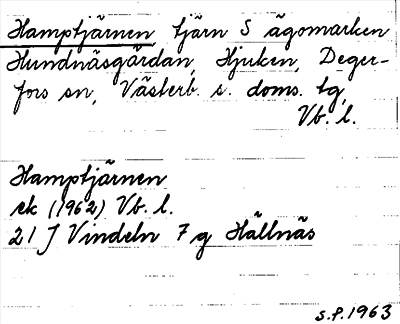 Hamptjärnen, tjärn S ägomarken
Hundnäsgårdan, Hjuken, Deger-
fors sn, Västerb. s. doms. tg,
Vb. l.
Hamptjärnen
ek (1962) Vb. l.
21 J Vindeln 7 g Hällnäs
S.P. 1963